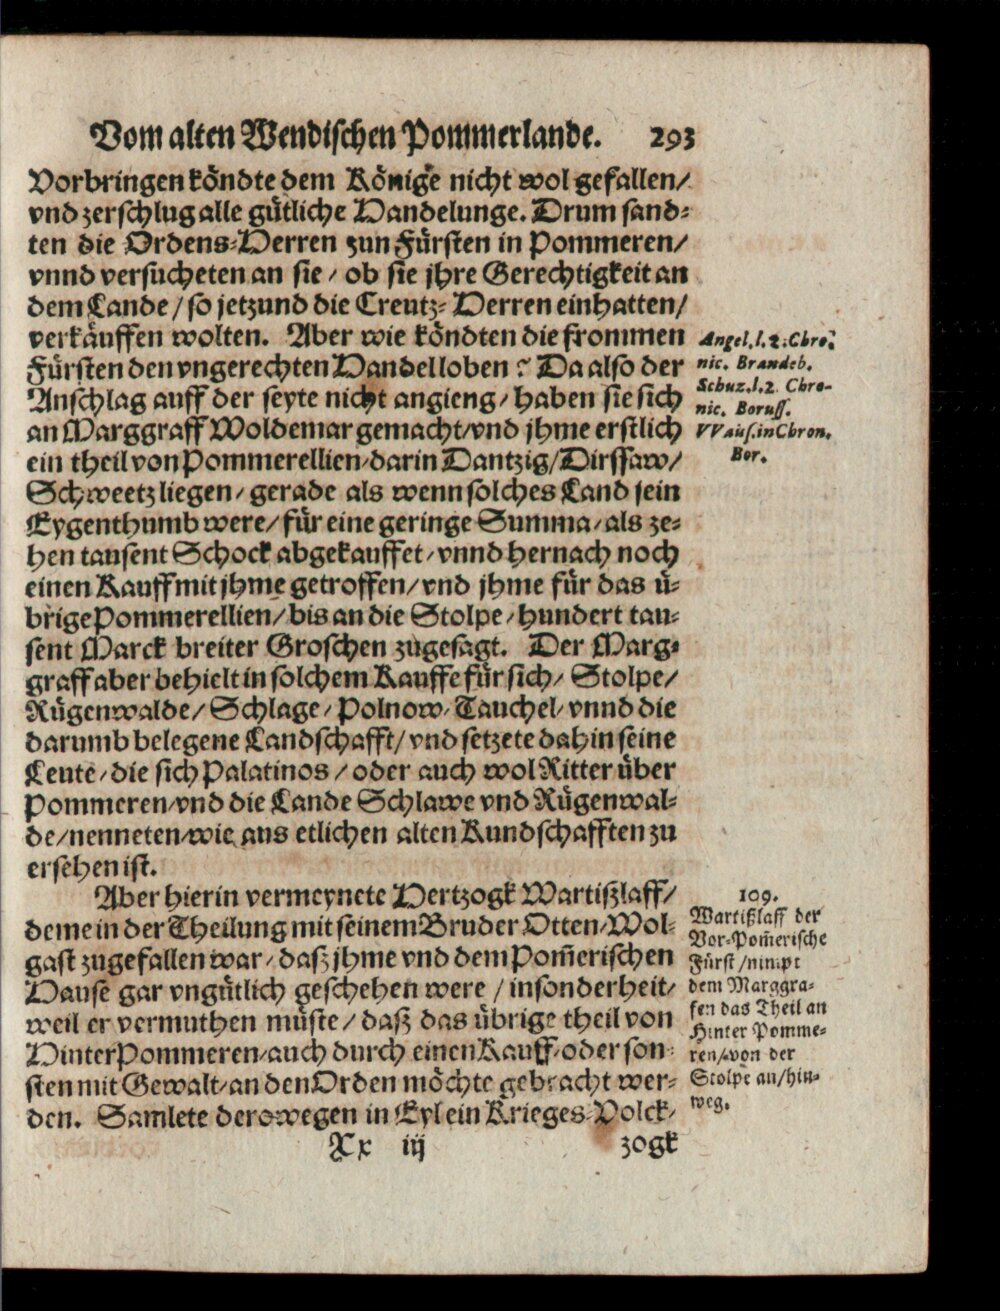 Vom alten Wendischen Pommerlande. 293
Vorbringen köndte dem Könige nicht wol gefallen/
vnd zerschlug alle gütliche Handelunge. Drum sand-
ten die Ordens-Herren zun Fürsten in Pommeren/
vnnd versucheten an sie / ob sie jhre Gerechtigkeit an
dem Lande / so jetzund die Creutz-Herren einhatten/
verkäuffen wolten. Aber wie köndten die frommen
Fürsten den vngerechten Handel loben? Da also der
Anschlag auff der seyte nicht angieng / haben sie sich
an Marggraff Woldemar gemacht/vnd jhme erstlich
ein theil von Pommerellien/darin Dantzig/Dirssaw/
Schweetz liegen / gerade als wenn solches Land sein
Eygenthumb were/ für eine geringe Summa/als ze-
hen tausent Schock abgekauffet/vnnd hernach noch
einen Kauff mit jhme getroffen/vnd jhme für das ü-
brige Pommerellien/bis an die Stolpe/hundert tau-
sent Marck breiter Groschen zugesagt. Der Marg-
graff aber behielt in solchem Kauffe für sich/ Stolpe/
Rügenwalde/ Schlage/ Polnow/Tauchel/vnnd die
darumb belegene Landschafft/vnd setzete dahin seine
Leute/die sich Palatinos / oder auch wol Ritter über
Pommeren/vnd die Lande Schlawe vnd Rügenwal-
de/nenneten/wie aus etlichen alten Kundschafften zu
ersehen ist.
Angel. l. 2. Chro-
nic. Brandeb.
Schuz. l. 2. Chro-
nic. Boruss.
VVais. in Chron.
Bor.
Aber hierin vermeynete Hertzogk Wartißlaff/
deme in der Theilung mit seinem Bruder Otten/Wol-
gast zugefallen war/ daß jhme vnd dem Pom̃erischen
Hause gar vngütlich geschehen were / insonderheit/
weil er vermuthen müste / daß das übrige theil von
HinterPommeren/auch durch einen Kauff/oder son-
sten mit Gewalt/an den Orden möchte gebracht wer-
den. Samlete derowegen in Eyl ein Krieges-Volck/
109.
Wartißlaff der
Vor-Pom̃erische
Fürst/nimpt
dem Marggra-
fen das Theil an
Hinter Pomme-
ren/von der
Stolpe an/hin-
weg.
Xx iij zogk